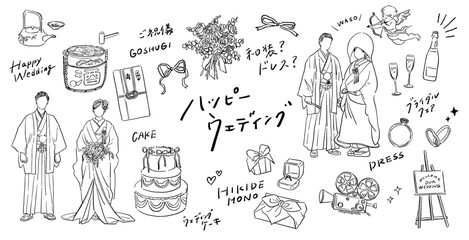 Happy
Wedding
ご祝儀
GOSHUGI
酒
和装?
ドレス?
WASO!
ハッピー
ウェディング
ブライダル
フェア
CAKE
ウェディング
ケーキ
HIKIDE
MONO
DRESS
WELCOME
OUR
WEDDING